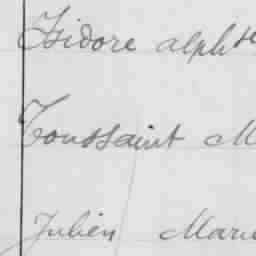 Isidore alph
Toussaint M
Julien Marie